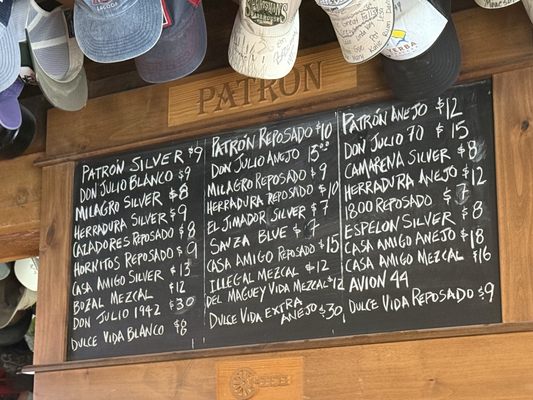 PATRÓN
PATRÓN SILVER $9
DON JULIO BLANCO $9
MILAGRO SILVER $8
HERRADURA SILVER $9
CAZADORES REPOSADO $8
HORNITOS REPOSADO $9
CASA AMIGO SILVER $13
BOZAL MEZCAL $12
DON JULIO 1942 $30
DULCE VIDA BLANCO $8
PATRÓN REPOSADO $10
DON JULIO AÑEJO 13
MILAGRO REPOSADO $9
HERRADURA REPOSADO $10
EL JIMADOR SILVER $7
SAUZA BLUE $7
CASA AMIGO REPOSADO $15
ILLEGAL MEZCAL $12
DEL MAGUEY VIDA MEZCAL $12
DULCE VIDA EXTRA
AÑEJO $30
PATRÓN AÑEJO $12
DON JULIO 70 $15
CAMARENA SILVER $8
HERRADURA AÑEJO $12
1800 REPOSADO $7
ESPELON SILVER $8
CASA AMIGO AÑEJO $18
CASA AMIGO MEZCAL $16
AVION 44
DULCE VIDA REPOSADO $9